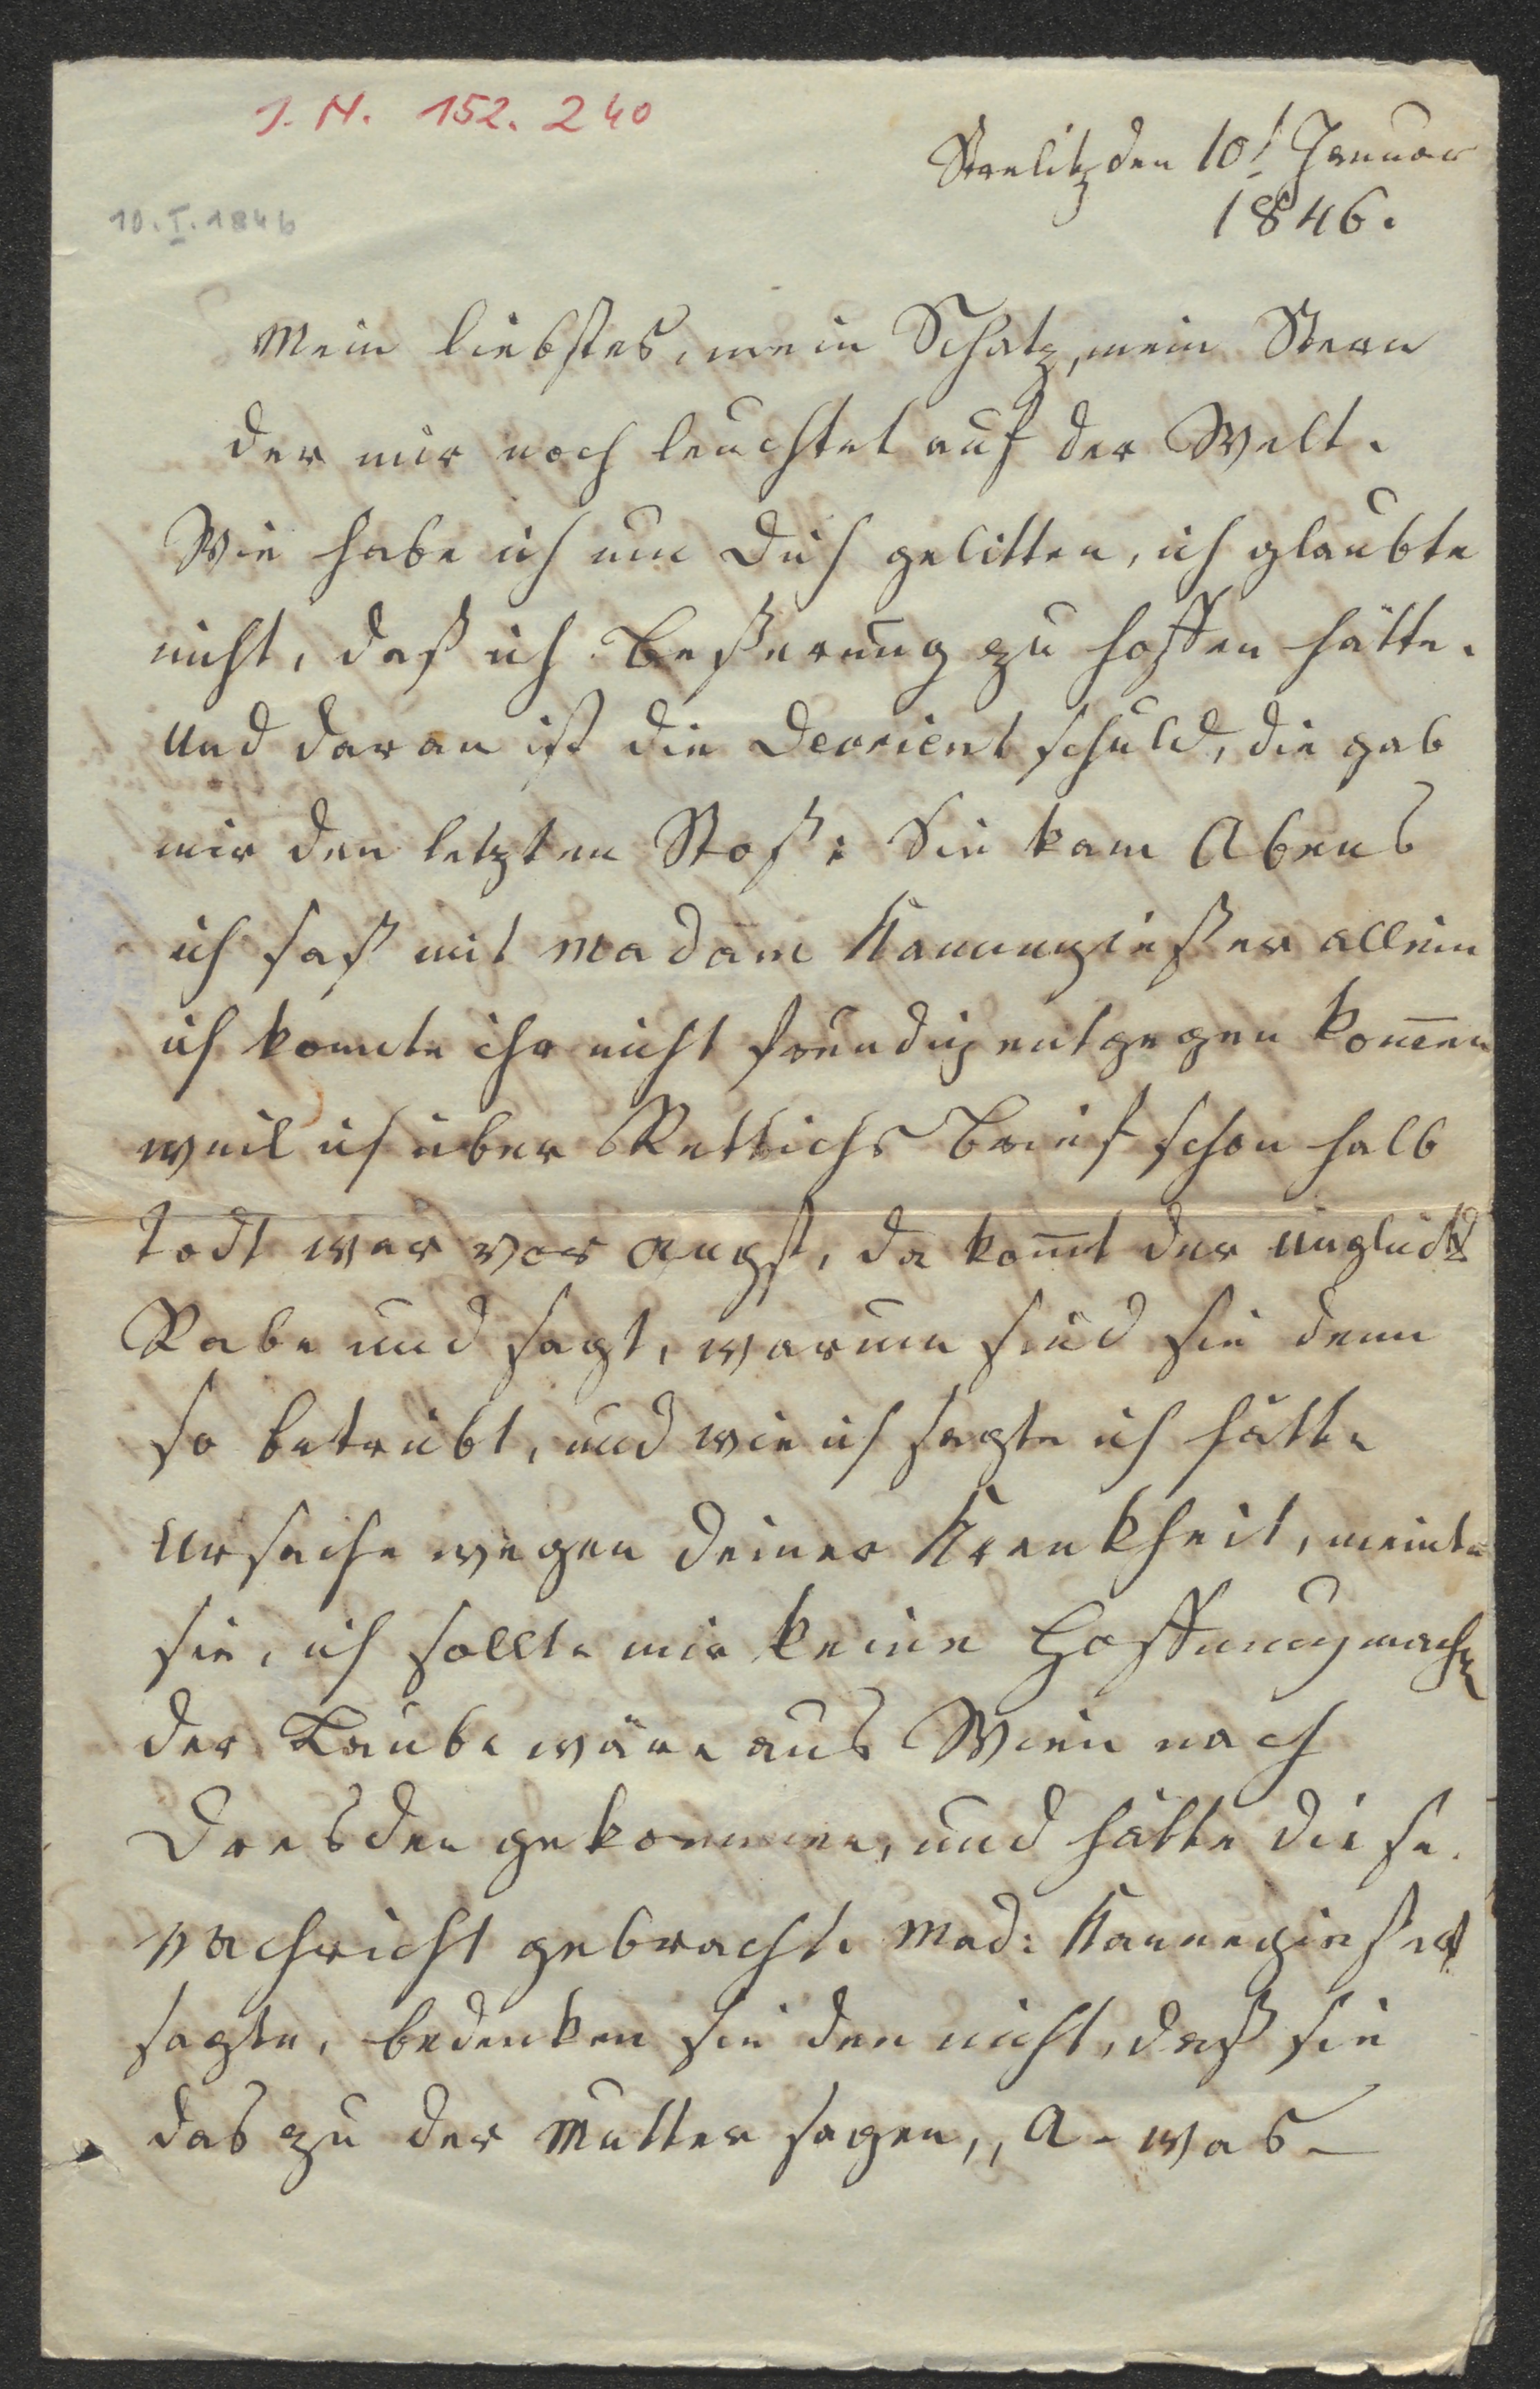 J. N. 152.240
Strelitz den 10t Januar
10.I.1846
1846.
Mein liebstes, mein Schatz, mein Stern
der mir noch leuchtet auf der Welt.
Wie habe ich um Dich gelitten, ich glaubte
nicht, daß ich Beßerung zu hoffen hätte.
Und daran ist die Devrient schuld, die gab
mir den letzten Stoß: Sie kam Abens
ich saß mit Madam Kannengießer allein
ich konnte ihr nicht freudig entgegen kom̄en
weil ich über Rettichs Brief schon halb
todt war vor Angst, da kom̄t der Unglücks
Rabe und sagt, warum sind sie denn
so betrübt, und wie ich sagte ich hätte
Ursache wegen Deiner Krankheit, meinte
sie, ich sollte mir keine Hoffnung machen
der Laube wäre aus Wien nach
Dresden gekommen, und hätte diese
Nachricht gebracht. Mad: Kannegießer
sagte, bedenken sie den nicht, daß sie
das zu der Mutter sagen,, A - was -